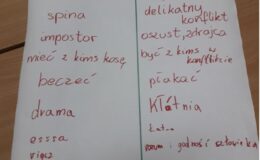 spina
impostor
mieć z kimś kosę
beczeć
drama
essa
delikatny
konflikt
oszust, zdrajca
być z kimś w
konflikcie
płakać
Kłótnia
godność człowieka